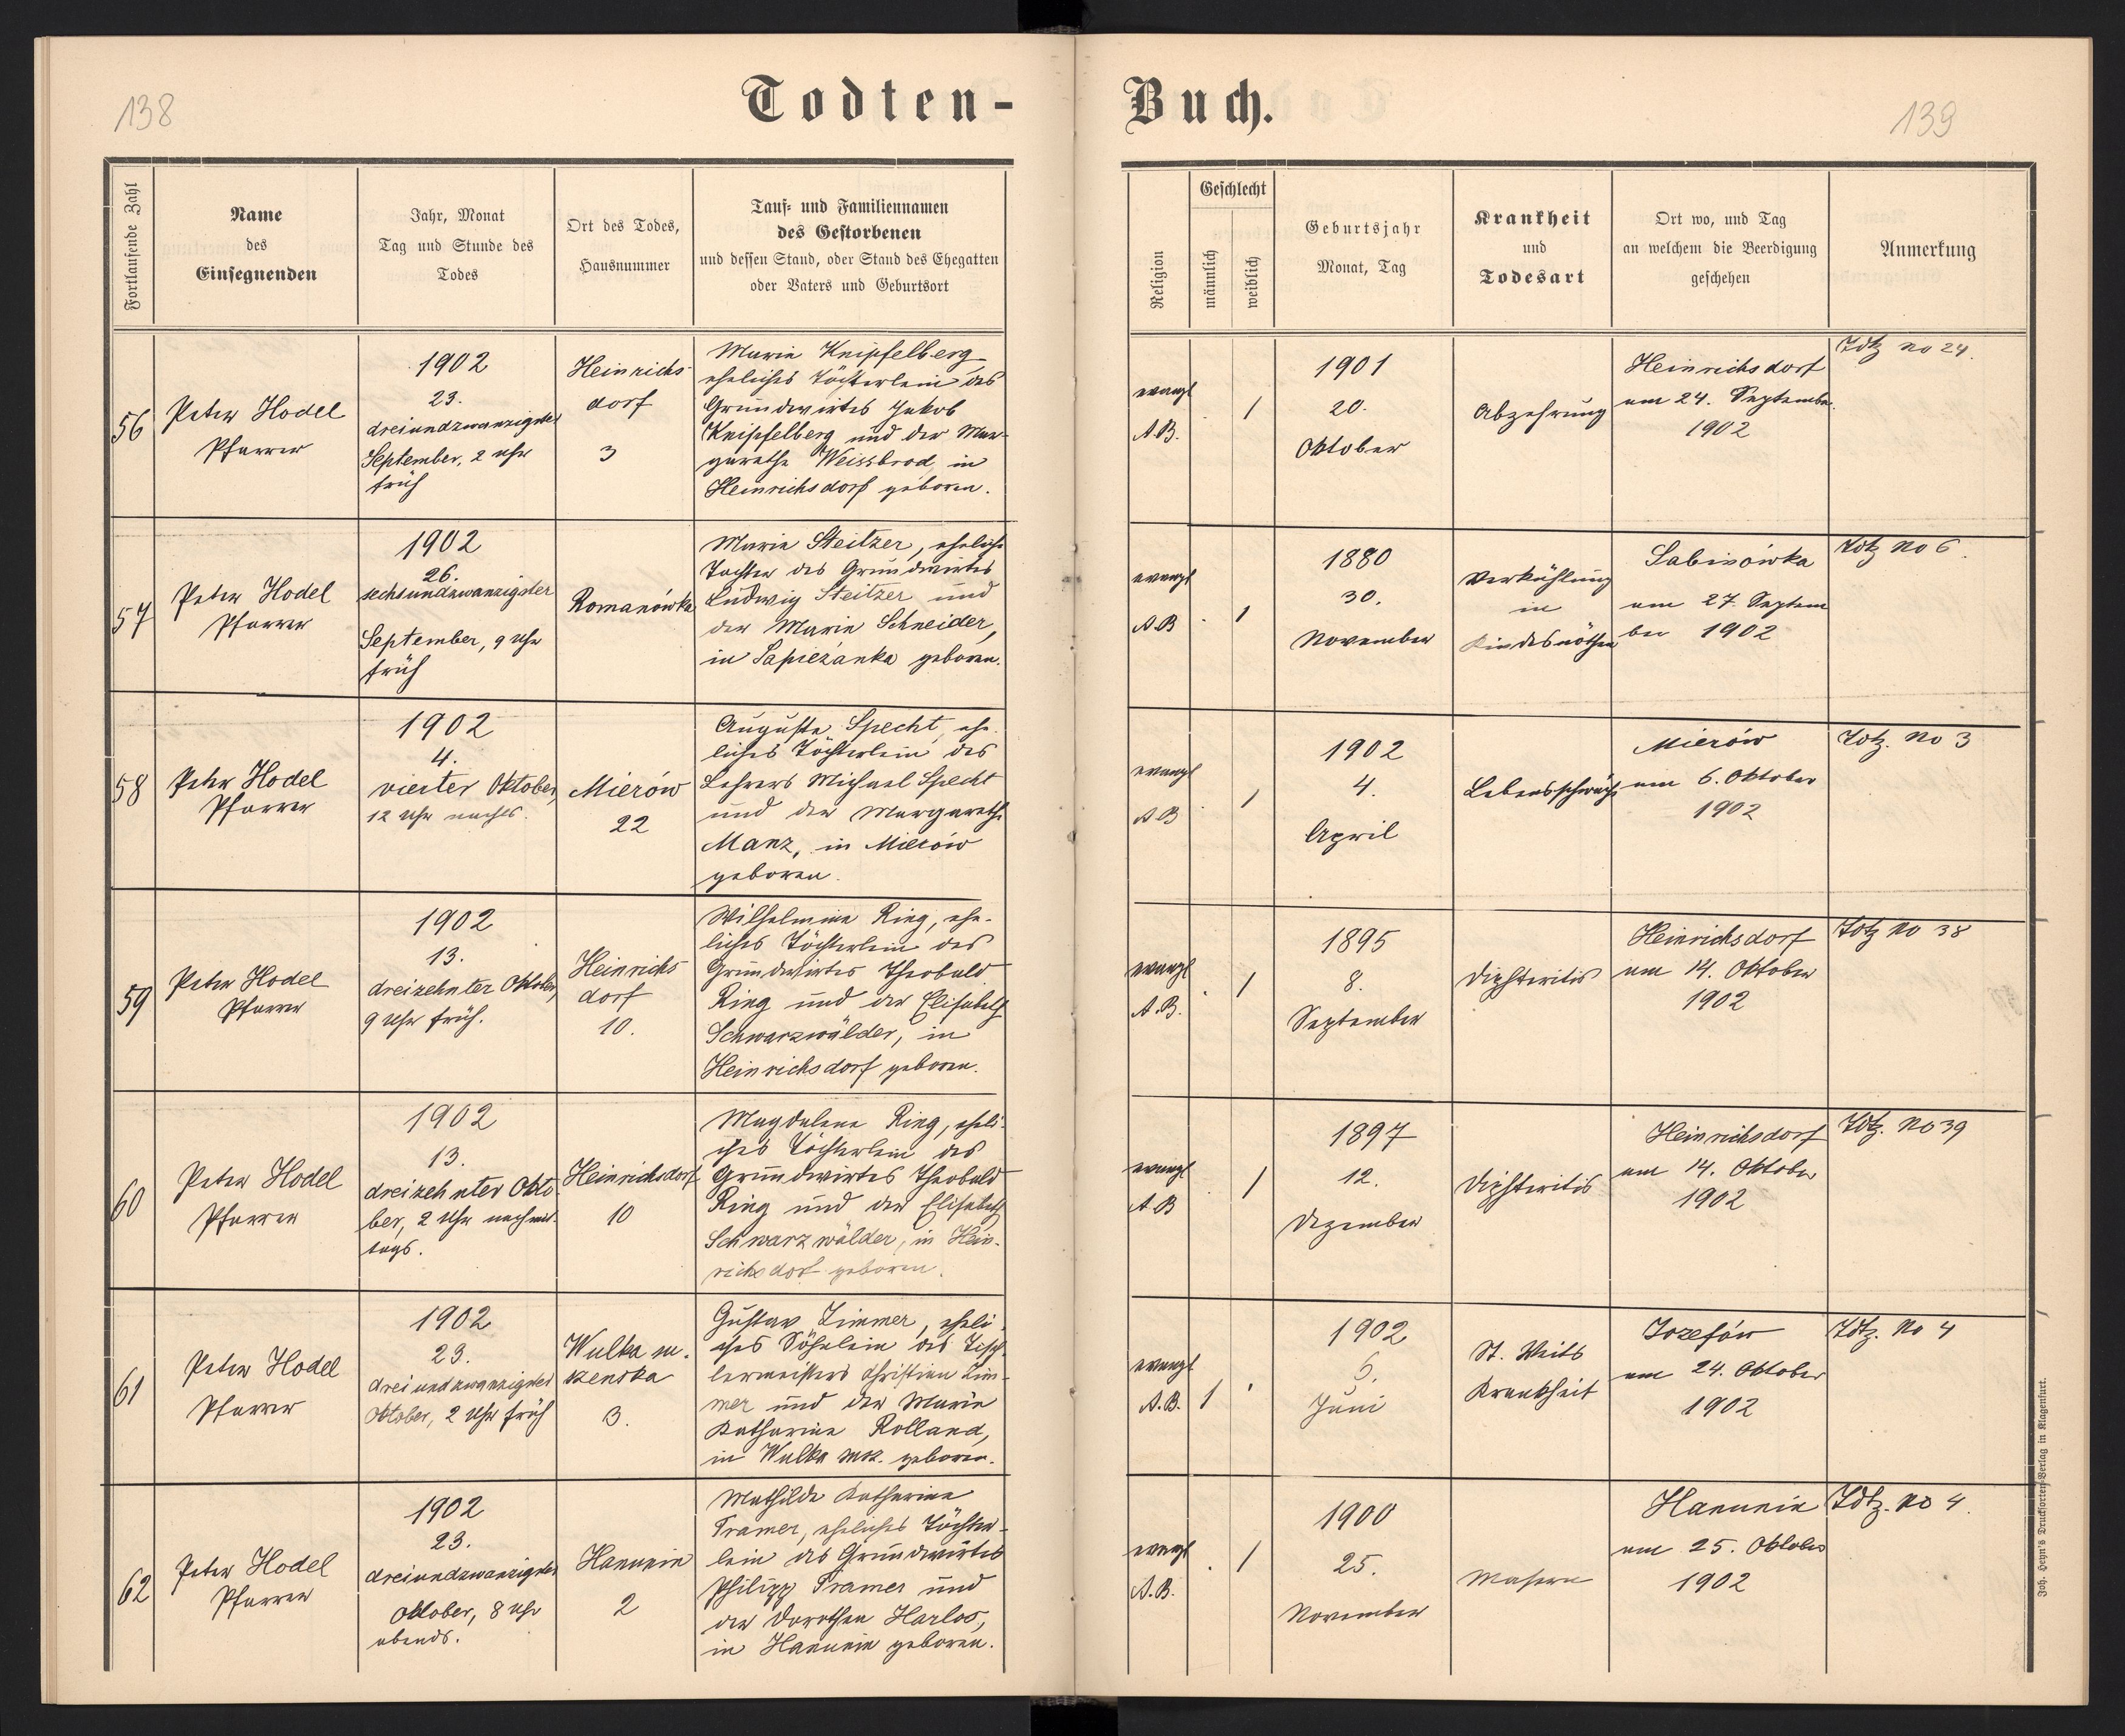 138
Todten-
Buch.
139
Fortlaufende Zahl
Name
des
Einsegnenden
Jahr, Monat
Tag und Stunde des
Todes
Ort des Todes,
Hausnummer
Tauf- und Familiennamen
des Gestorbenen
und dessen Stand, oder Stand des Ehegatten
oder Vaters und Geburtsort
Religion
Geschlecht
männlich
weiblich
Geburtsjahr
Monat, Tag
Krankheit
und
Todesart
Ort wo, und Tag
an welchem die Beerdigung
geschehen
Anmerkung
56
Peter Hodel
Pfarrer
1902
23.
dreiundzwanzigster
September, 2 Uhr
früh
Heinrichs
dorf
3
Marie Knipfelberg
eheliches Töchterlein des
Grundwirtes Jakob
Knipfelberg und der Mar-
garethe Weissbrod, in
Heinrichsdorf geboren.
evangl
A.B.
/
1901
20.
Oktober
Abzehrung
Heinrichsdorf
am 24. September
1902
Tdtz no 24.
57
Peter Hodel
Pfarrer
1902
26.
sechsundzwanzigster
September, 9 Uhr
früh
Romanówka
Marie Steitzer, eheliche
Tochter des Grundwirtes
Ludwig Steitzer und
der Marie Schneider,
in Sapiezanka geboren.
evangl
A.B
/
1880
30.
November
Verkühlung
in
Kindesnöthen
Sabinówka
am 27. Septem
ber 1902
Tdtz no 6.
58
Peter Hodel
Pfarrer
1902
4.
vierter Oktober,
12 Uhr nachts.
Mierów
22
Auguste Specht, ehe-
liches Töchterlein des
Lehrers Michael Specht
und der Margarethe
Manz, in Mierów
geboren.
evangl
A.B
/
1902
4.
April
Lebensschwäche
Mierów
am 6. Oktober
1902
Tdtz. no 3
59
Peter Hodel
Pfarrer
1902
13.
dreizehnter Oktober,
9 Uhr früh.
Heinrichs
dorf
10.
Wilhelmine Ring, ehe-
liches Töchterlein des
Grundwirtes Theobald
Ring und der Elisabeth
Schwarzwälder, in
Heinrichsdorf geboren.
evangl
A.B.
/
1895
8.
September
Diphteritis
Heinrichsdorf
am 14. Oktober
1902
Tdtz no 38
60
Peter Hodel
Pfarrer
1902
13.
dreizehnter Okto-
ber, 2 Uhr nachmit-
tags.
Heinrichsdorf
10
Magdalena Ring, eheli-
ches Töchterlein des
Grundwirtes Theobald
Ring und der Elisabeth
Schwarzwälder, in Hein-
richsdorf geboren.
evangl
A.B
/
1897
12.
Dezember
Diphteritis
Heinrichsdorf
am 14. Oktober
1902
Tdtz. no 39
61
Peter Hodel
Pfarrer
1902
23.
dreiundzwanzigster
Oktober, 2 Uhr früh
Wulka ma-
zenska
3.
Gustav Zimmer, eheli-
ches Söhnlein des Tisch-
lermeisters Christian Zim-
mer und der Marie
Katharina Rolland,
in Wulka maz. geboren.
evangl
A.B.
/
1902
6.
Juni
St. Veits
Krankheit
Jozefów
am 24. Oktober
1902
Tdtz. no 4
62
Peter Hodel
Pfarrer
1902
23.
dreiundzwanzigster
Oktober, 8 Uhr
abends.
Hanunin
2
Mathilde Katharina
Tramer, eheliches Töchter-
lein des Grundwirtes
Philipp Tramer und
der Dorothea Harlos,
in Hanunin geboren.
evangl
A.B.
/
1900
25.
November
Masern
Hanunin
am 25. Oktober
1902
Tdtz. no 4.
Joh. Heyn's Drucksorten-Verlag in Klagenfurt.